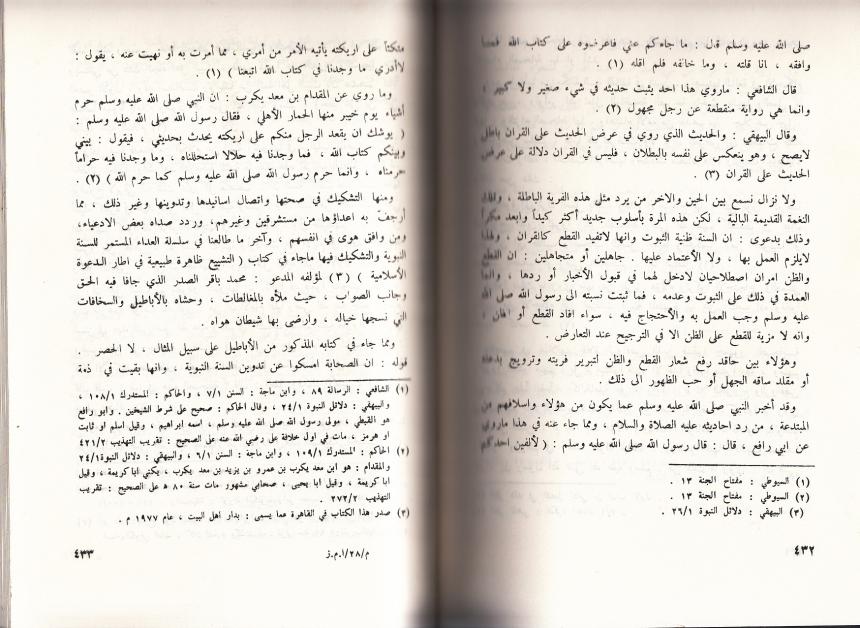 صلى الله عليه وسلم قال : ما جاءكم عني فاعرضوه على كتاب الله فما
وافقه ، انا قلته ، وما خالفه فلم اقله (١) .
قال الشافعي : ماروي هذا احد يثبت حديثه في شيء صغير ولا كبير ،
وانما هي رواية منقطعة عن رجل مجهول (٢) .
وقال البيهقي : والحديث الذي روي في عرض الحديث على القران باطل
لايصح ، وهو ينعكس على نفسه بالبطلان ، فليس في القران دلالة على عرض
الحديث على القران (٣) .
ولا نزال نسمع بين الحين والاخر من يرد مثل هذه الفرية الباطلة ، وتلك
النغمة القديمة البالية ، لكن هذه المرة بأسلوب جديد أكثر كيداً وابعد مكراً
وذلك بدعوى : ان السنة ظنية الثبوت وانها لاتفيد القطع كالقران ، ولهذا
لايلزم العمل بها ، ولا الأعتماد عليها . جاهلين أو متجاهلين : ان القطع
والظن امران اصطلاحيان لادخل لهما في قبول الأخبار أو ردها ، وانما
العمدة في ذلك على الثبوت وعدمه ، فما ثبتت نسبته الى رسول الله صلى الله
عليه وسلم وجب العمل به والأحتجاج فيه ، سواء افاد القطع أو الظن ،
وانه لا مزية للقطع على الظن الا في الترجيح عند التعارض .
وهؤلاء بين حاقد رفع شعار القطع والظن لتبرير فريته وترويج بدعته
أو مقلد ساقه الجهل أو حب الظهور الى ذلك .
وقد أخبر النبي صلى الله عليه وسلم عما يكون من هؤلاء واسلافهم من
المبتدعة ، من رد احاديثه عليه الصلاة والسلام ، ومما جاء عنه في هذا ماروي
عن ابي رافع ، قال : قال رسول الله صلى الله عليه وسلم : ( لألفين احدكم
(١) السيوطي : مفتاح الجنة ١٣ .
(٢) السيوطي : مفتاح الجنة ١٣ .
(٣) البيهقي : دلائل النبوة ٢٦/١ .
٤٣٢
متكئاً على اريكته يأتيه الأمر من أمري ، مما أمرت به أو نهيت عنه ، يقول :
لاأدري ما وجدنا في كتاب الله اتبعنا ) (١) .
وما روي عن المقدام بن معد يكرب : ان النبي صلى الله عليه وسلم حرم
أشياء يوم خيبر منها الحمار الأهلي ، فقال رسول الله صلى الله عليه وسلم :
( يوشك ان يقعد الرجل منكم على اريكته يحدث بحديثي ، فيقول : بيني
وبينكم كتاب الله ، فما وجدنا فيه حلالا استحللناه ، وما وجدنا فيه حراماً
حرمناه ، وانما حرم رسول الله صلى الله عليه وسلم كما حرم الله ) (٢) .
ومنها التشكيك في صحتها واتصال اسانيدها وتدوينها وغير ذلك ، مما
أرجف به اعداؤها من مستشرقين وغيرهم، وردد صداه بعض الادعياء،
ومن وافق هوى في انفسهم ، وآخر ما طالعنا في سلسلة العداء المستمر للسنة
النبوية والتشكيك فيها ماجاء في كتاب ( التشييع ظاهرة طبيعية في اطار الدعوة
الأسلامية ) (٣) لمؤلفه المدعو : محمد باقر الصدر الذي جافا فيه الحق
وجانب الصواب ، حيث ملأه بالمغالطات ، وحشاه بالأباطيل والسخافات
التي نسجها خياله ، وارضى بها شيطان هواه .
ومما جاء في كتابه المذكور من الأباطيل على سبيل المثال ، لا الحصر .
قوله : ان الصحابة امسكوا عن تدوين السنة النبوية ، وانها بقيت في ذمة
(١) الشافعي : الرسالة ٨٩ ، وابن ماجة : السنن ٧/١ ، والحاكم : المستدرك ١٠٨/١ ،
والبيهقي : دلائل النبوة ٢٤/١ ، وقال الحاكم : صحيح على شرط الشيخين . وابو رافع
هو القبطي ، مولى رسول الله صلى الله عليه وسلم ، اسمه ابراهيم ، وقيل اسلم او ثابت
او هرمز ، مات في اول خلافة علي رضي الله عنه على الصحيح : تقريب التهذيب ٤٢١/٢
(٢) الحاكم : المستدرك ١٠٩/١ ، وابن ماجة : السنن ٦/١ ، والبيهقي : دلائل النبوة ٢٤/١
والمقدام : هو ابن معد يكرب بن عمرو بن يزيد بن معد يكرب ، يكنى ابا كريمة ، وقيل
ابا كريمة ، وقيل ابا يحيى ، صحابي مشهور مات سنة ٨٠ ه على الصحيح : تقريب
التهذيب ٢٧٢/٢ .
(٣) صدر هذا الكتاب في القاهرة عما يسمى : بدار اهل البيت ، عام ١٩٧٧ م .
م/٢٨/ا.م.ز
٤٣٣